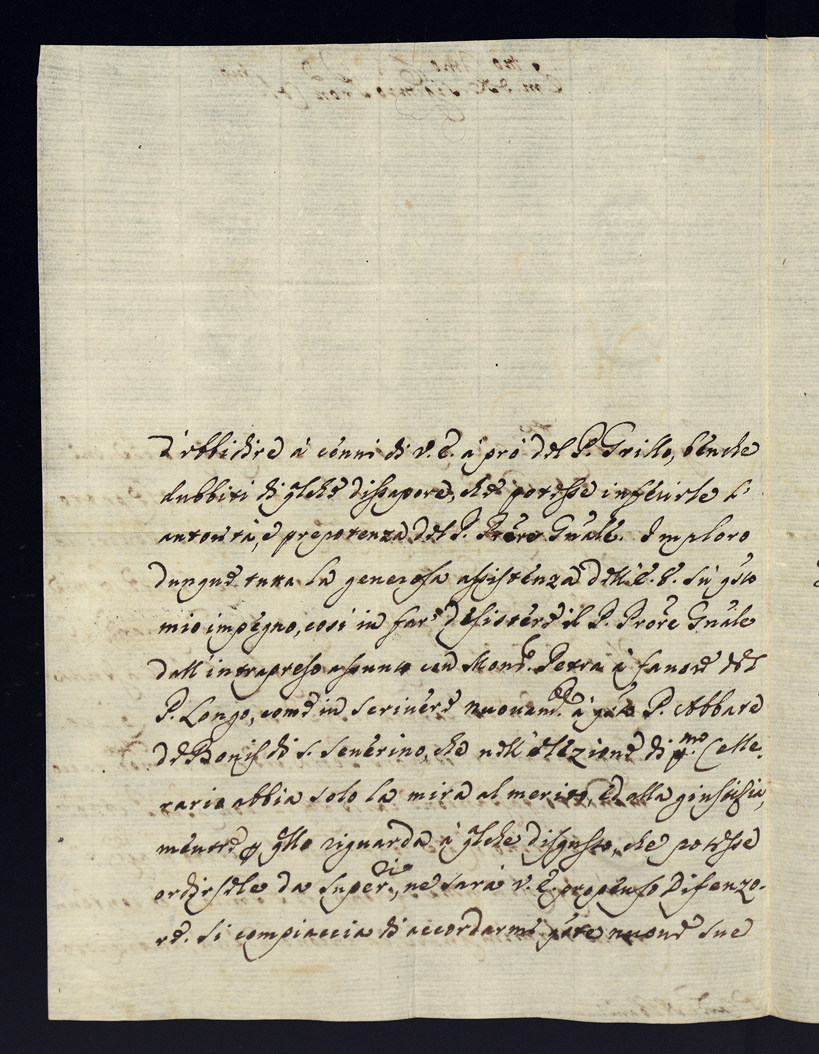 d'ebbidire à cénni di V. E. à prò del P. Grillo, bénche
dubbiti di qlche dissapore, che potesse inferirle l'
autorità, e prepotenza del P. Prôre Gnâle. Imploro
dunque tutta la generosa assisténza dell'E. V. sù qsto
mio impégno, cosi in far desistére il P. Prôre Gnâle
dall'intrapreso assunto con Monsr. Petra à favore del
P. Longo, come in scrivére nuovamte à qsto P. Abbate
de Bonis di S. Sevérino, che nell'elezione di pmo Celle,
raria abbia solo la mira al merito, e dalla giustizia,
méntre p qllo riguarda à qlche disgusto, che potesse
ordirsele da Superri, ne sarà V. E. propénso Difenzo-
re. Si compiaccia di accordarmi qste nuove sue